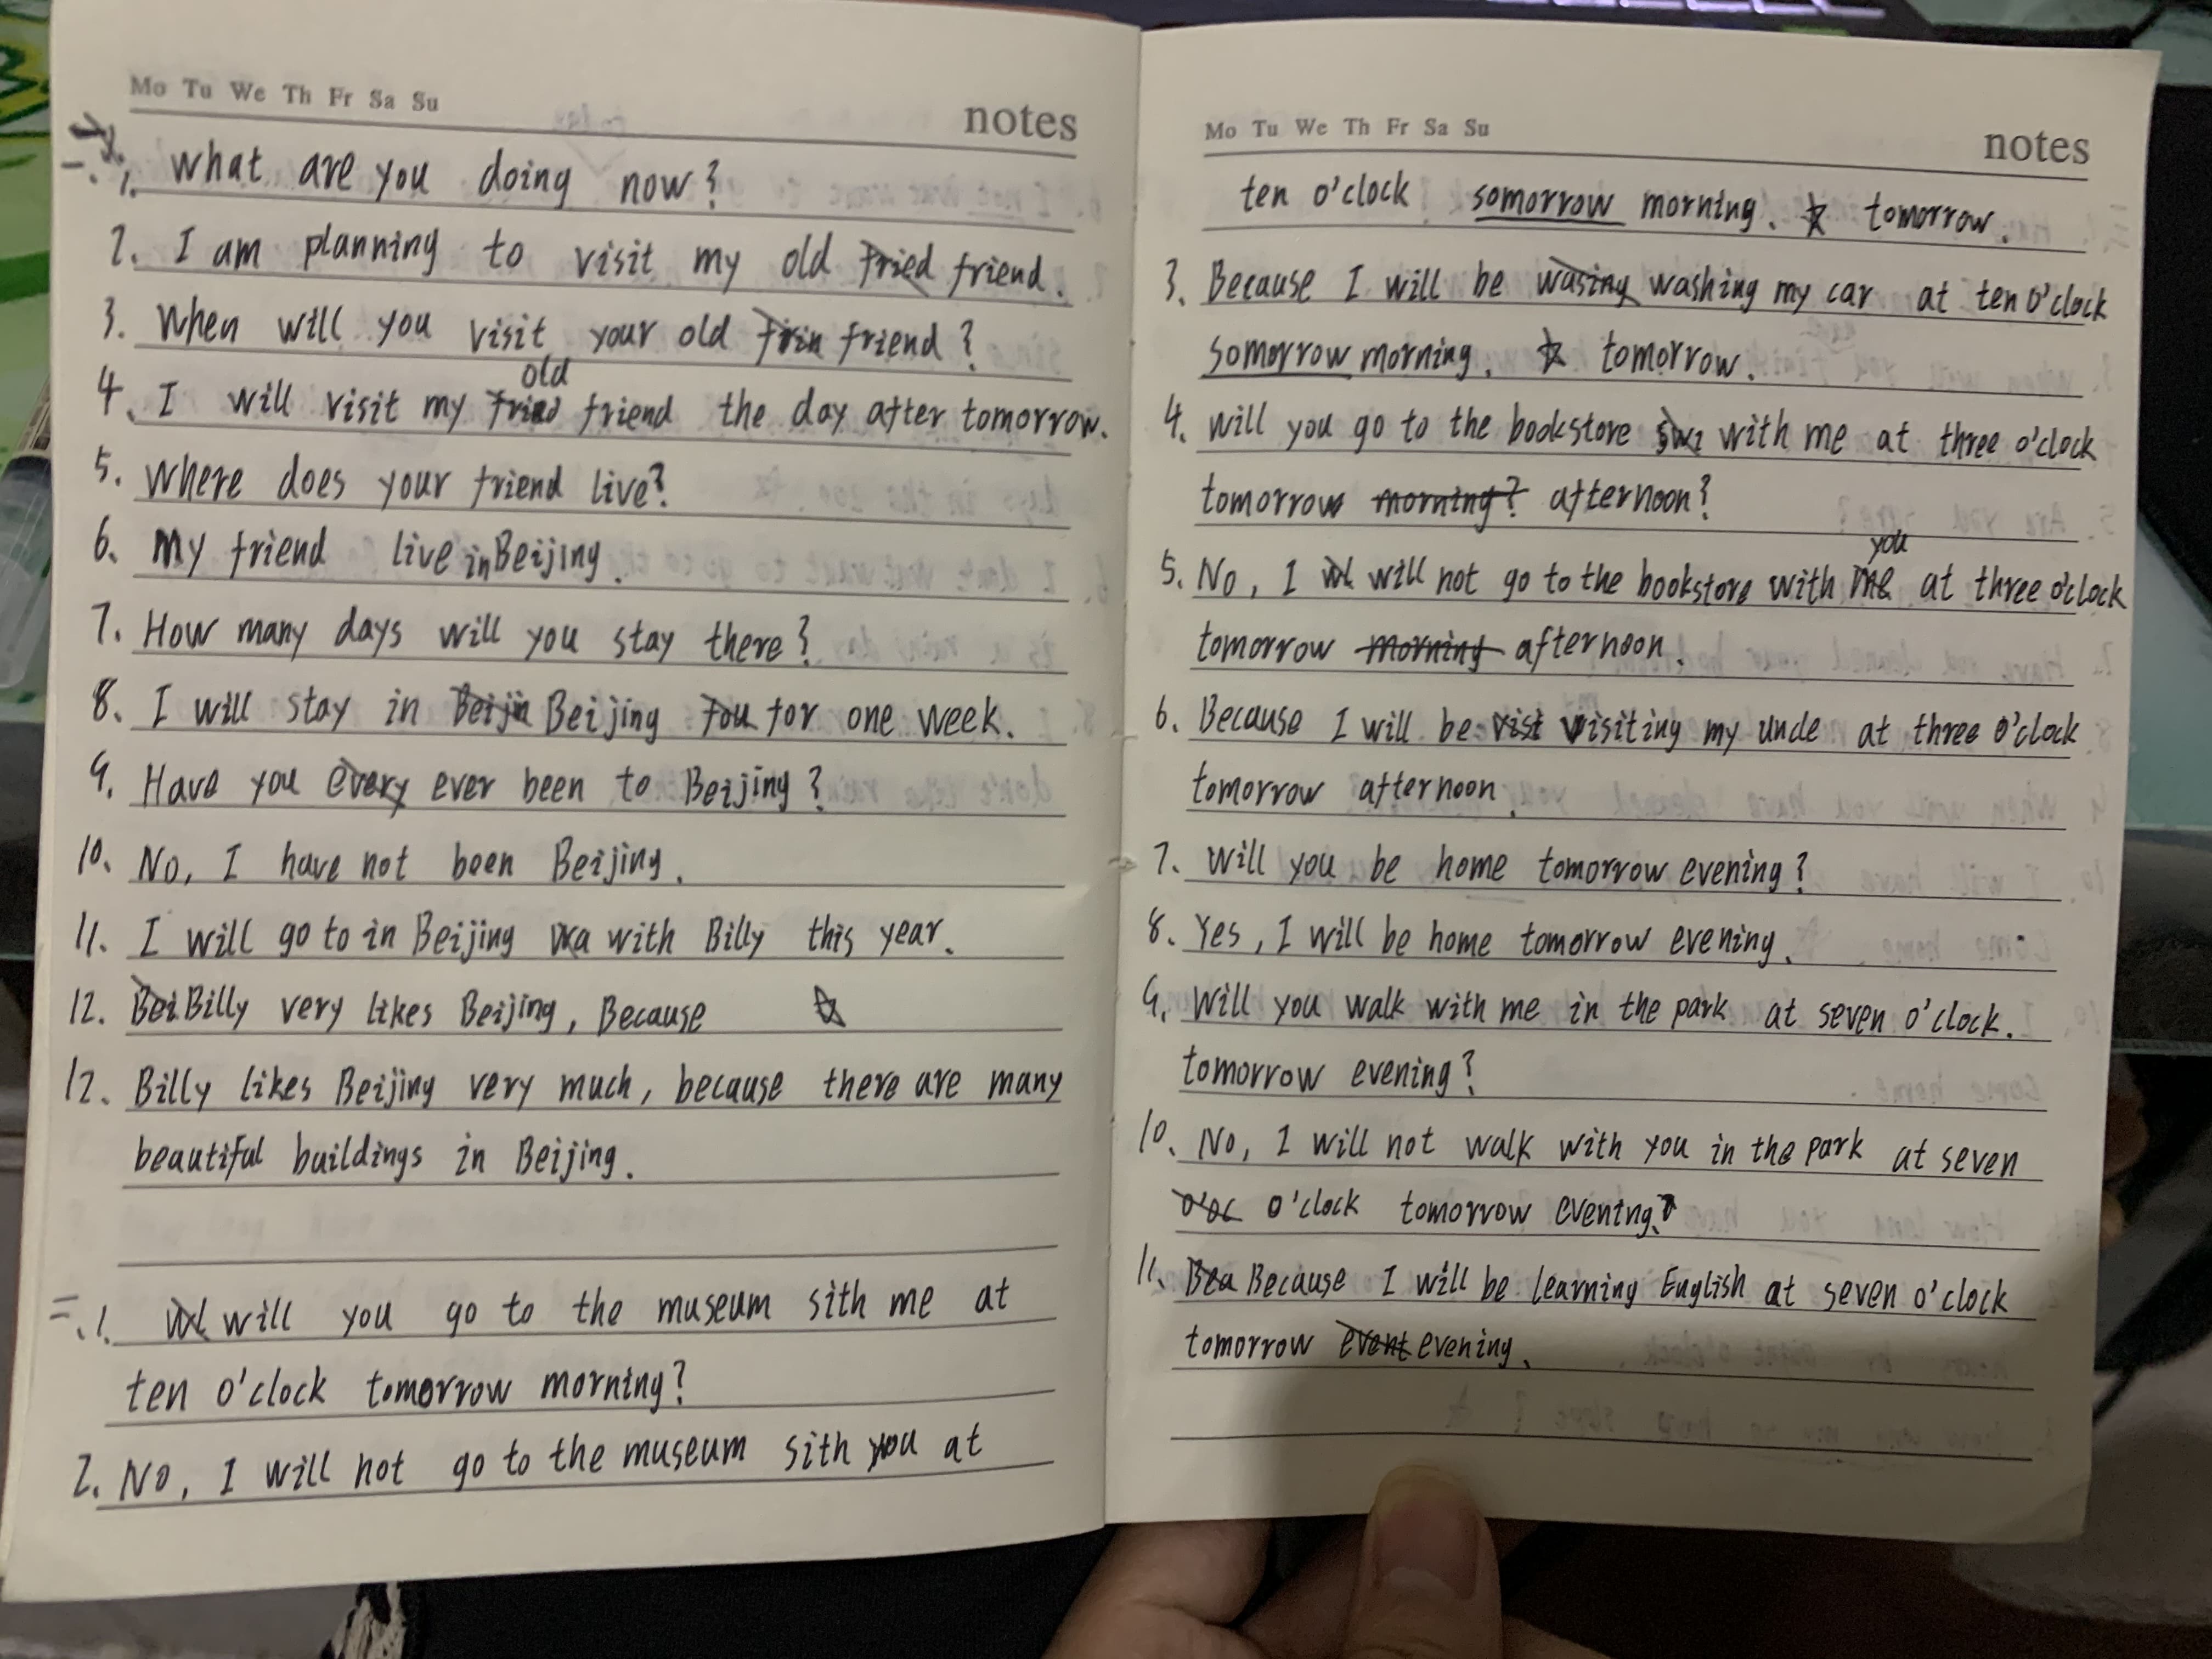 Mo Tu We Th Fr Sa Su
notes
一. 1. What are you doing now?
2. I am planning to visit my old fried friend.
3. When will you visit your old frin friend?
old
4. I will visit my friend the day after tomorrow.
5. Where does your friend live?
6. My friend live in Beijing.
7. How many days will you stay there?
8. I will stay in Beijin Beijing fou for one week.
9. Have you every ever been to Beijing?
10. No, I have not been Beijing.
11. I will go to in Beijing with Billy this year.
12. Bei Billy very likes Beijing, Because ☆
12. Billy likes Beijing very much, because there are many
beautiful buildings in Beijing.
二. 1. Wl will you go to the museum sith me at
ten o'clock tomorrow morning?
2. No, I will not go to the museum sith you at
Mo Tu We Th Fr Sa Su
notes
ten o'clock somorrow morning. ☆ tomorrow.
3. Because I will be wasing washing my car at ten o'clock
somorrow morning. ☆ tomorrow.
4. Will you go to the bookstore with me at three o'clock
tomorrow morning? afternoon?
you
5. No, I wl will not go to the bookstore with me at three o'clock
tomorrow morning afternoon.
6. Because I will be vist visiting my uncle at three o'clock
tomorrow afternoon.
7. Will you be home tomorrow evening?
8. Yes, I will be home tomorrow evening.
9. Will you walk with me in the park at seven o'clock.
tomorrow evening?
10. No, I will not walk with you in the park at seven
o'oc o'clock tomorrow evening.
11. Bea Because I will be learning English at seven o'clock
tomorrow event evening.